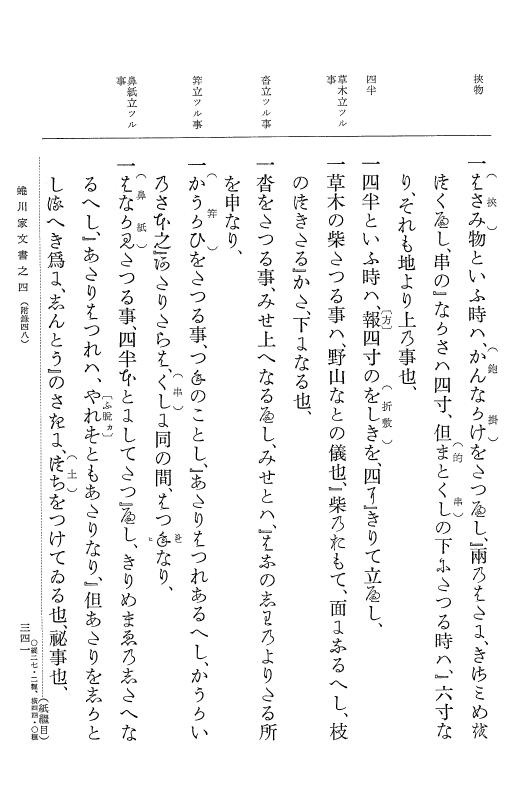 挾物
一はさみ物といふ時ハ、かんなかけをさつへし、『兩乃はさミ、きはミめ
くへし、串の『なかさハ四寸、但まとくしの下ニさつる時ハ、『六寸な
り、それも地より上乃事也、
四半
一四半といふ時ハ、報四寸のをしきを、四『きりて立へし、
草木立ツル事
一草木の柴さつる事ハ、野山なとの儀也、『柴乃おもて、面になるへし、枝
のきさる『かさ、下になる也、
沓立ツル事
一沓をさつる事、みせ上へなるへし、みせとハ、『はなの乃よりさる所
を申なり、
笄立ツル事
一かうかひをさつる事、つねのことし、『あさりはつれあるへし、かうかい
乃さ本之『あさりさらは、くしに同の間、はつなり、
鼻紙立ツル事
一はなかみさつる事、四半ほとにしてさつ『へし、きりめまゑ乃志さへな
るへし、『あさりはつれハ、やれともあさりなり、『但あさりを志かと
しるへき爲に、志んとう『のさたに、つちをつけてゐる也、祕事也、
(紙繼目)
蜷川家文書之四(附錄四八)
三四一